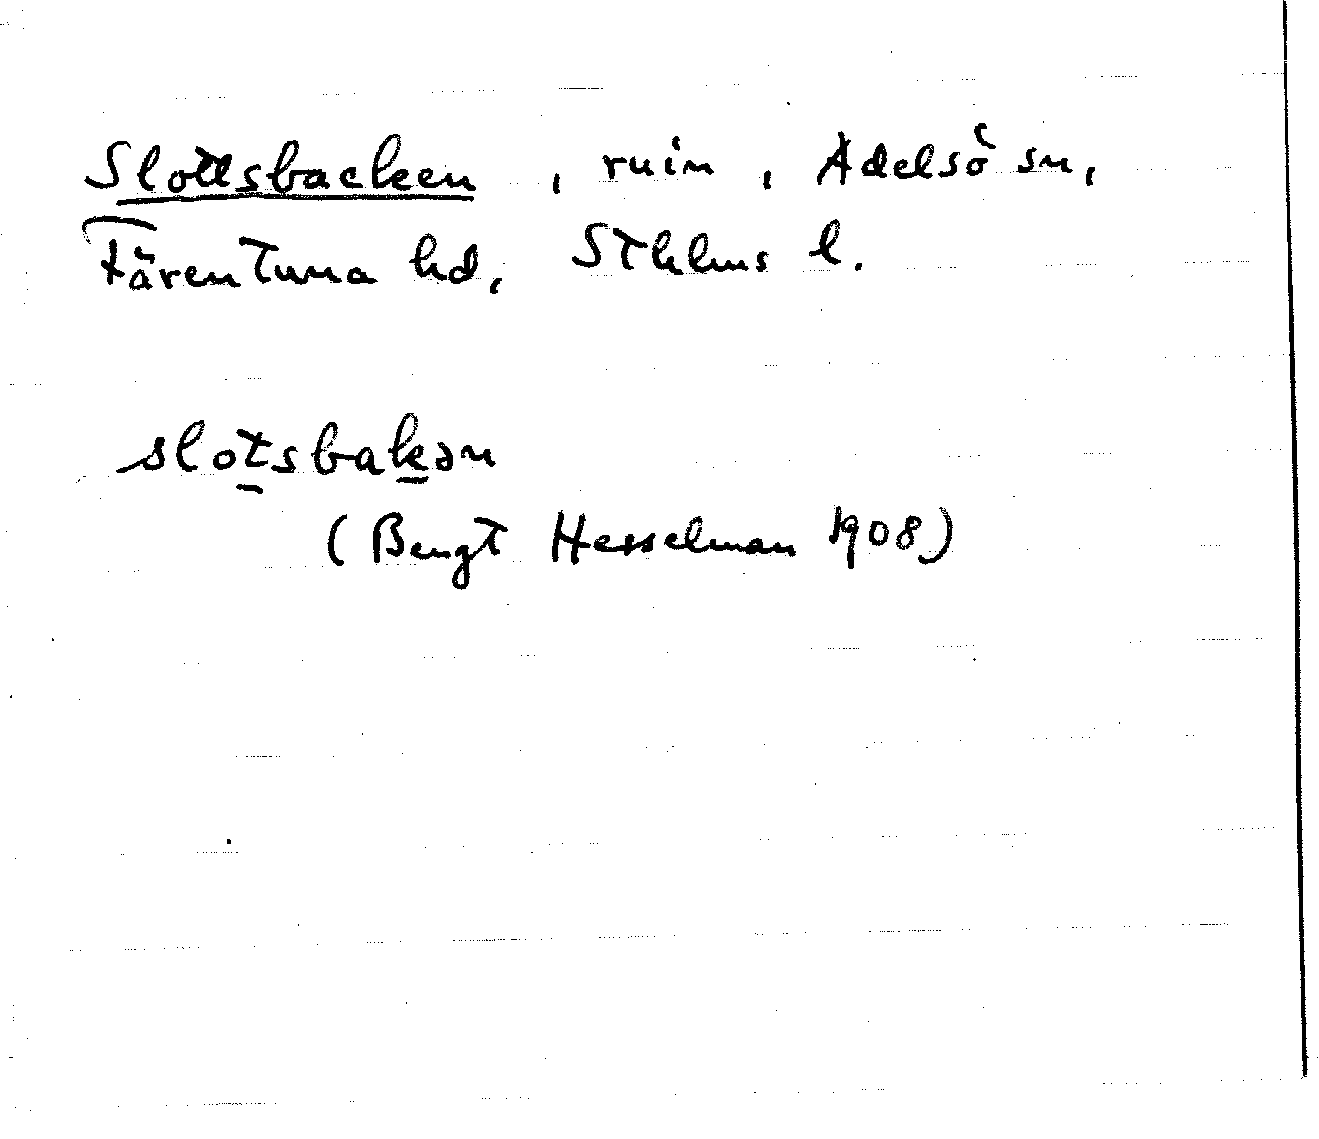 Slottsbacken, ruin, Adelsö sn,
Färentuna hd, Sthlms l.
slotsbakən
(Bengt Hesselman 1908)